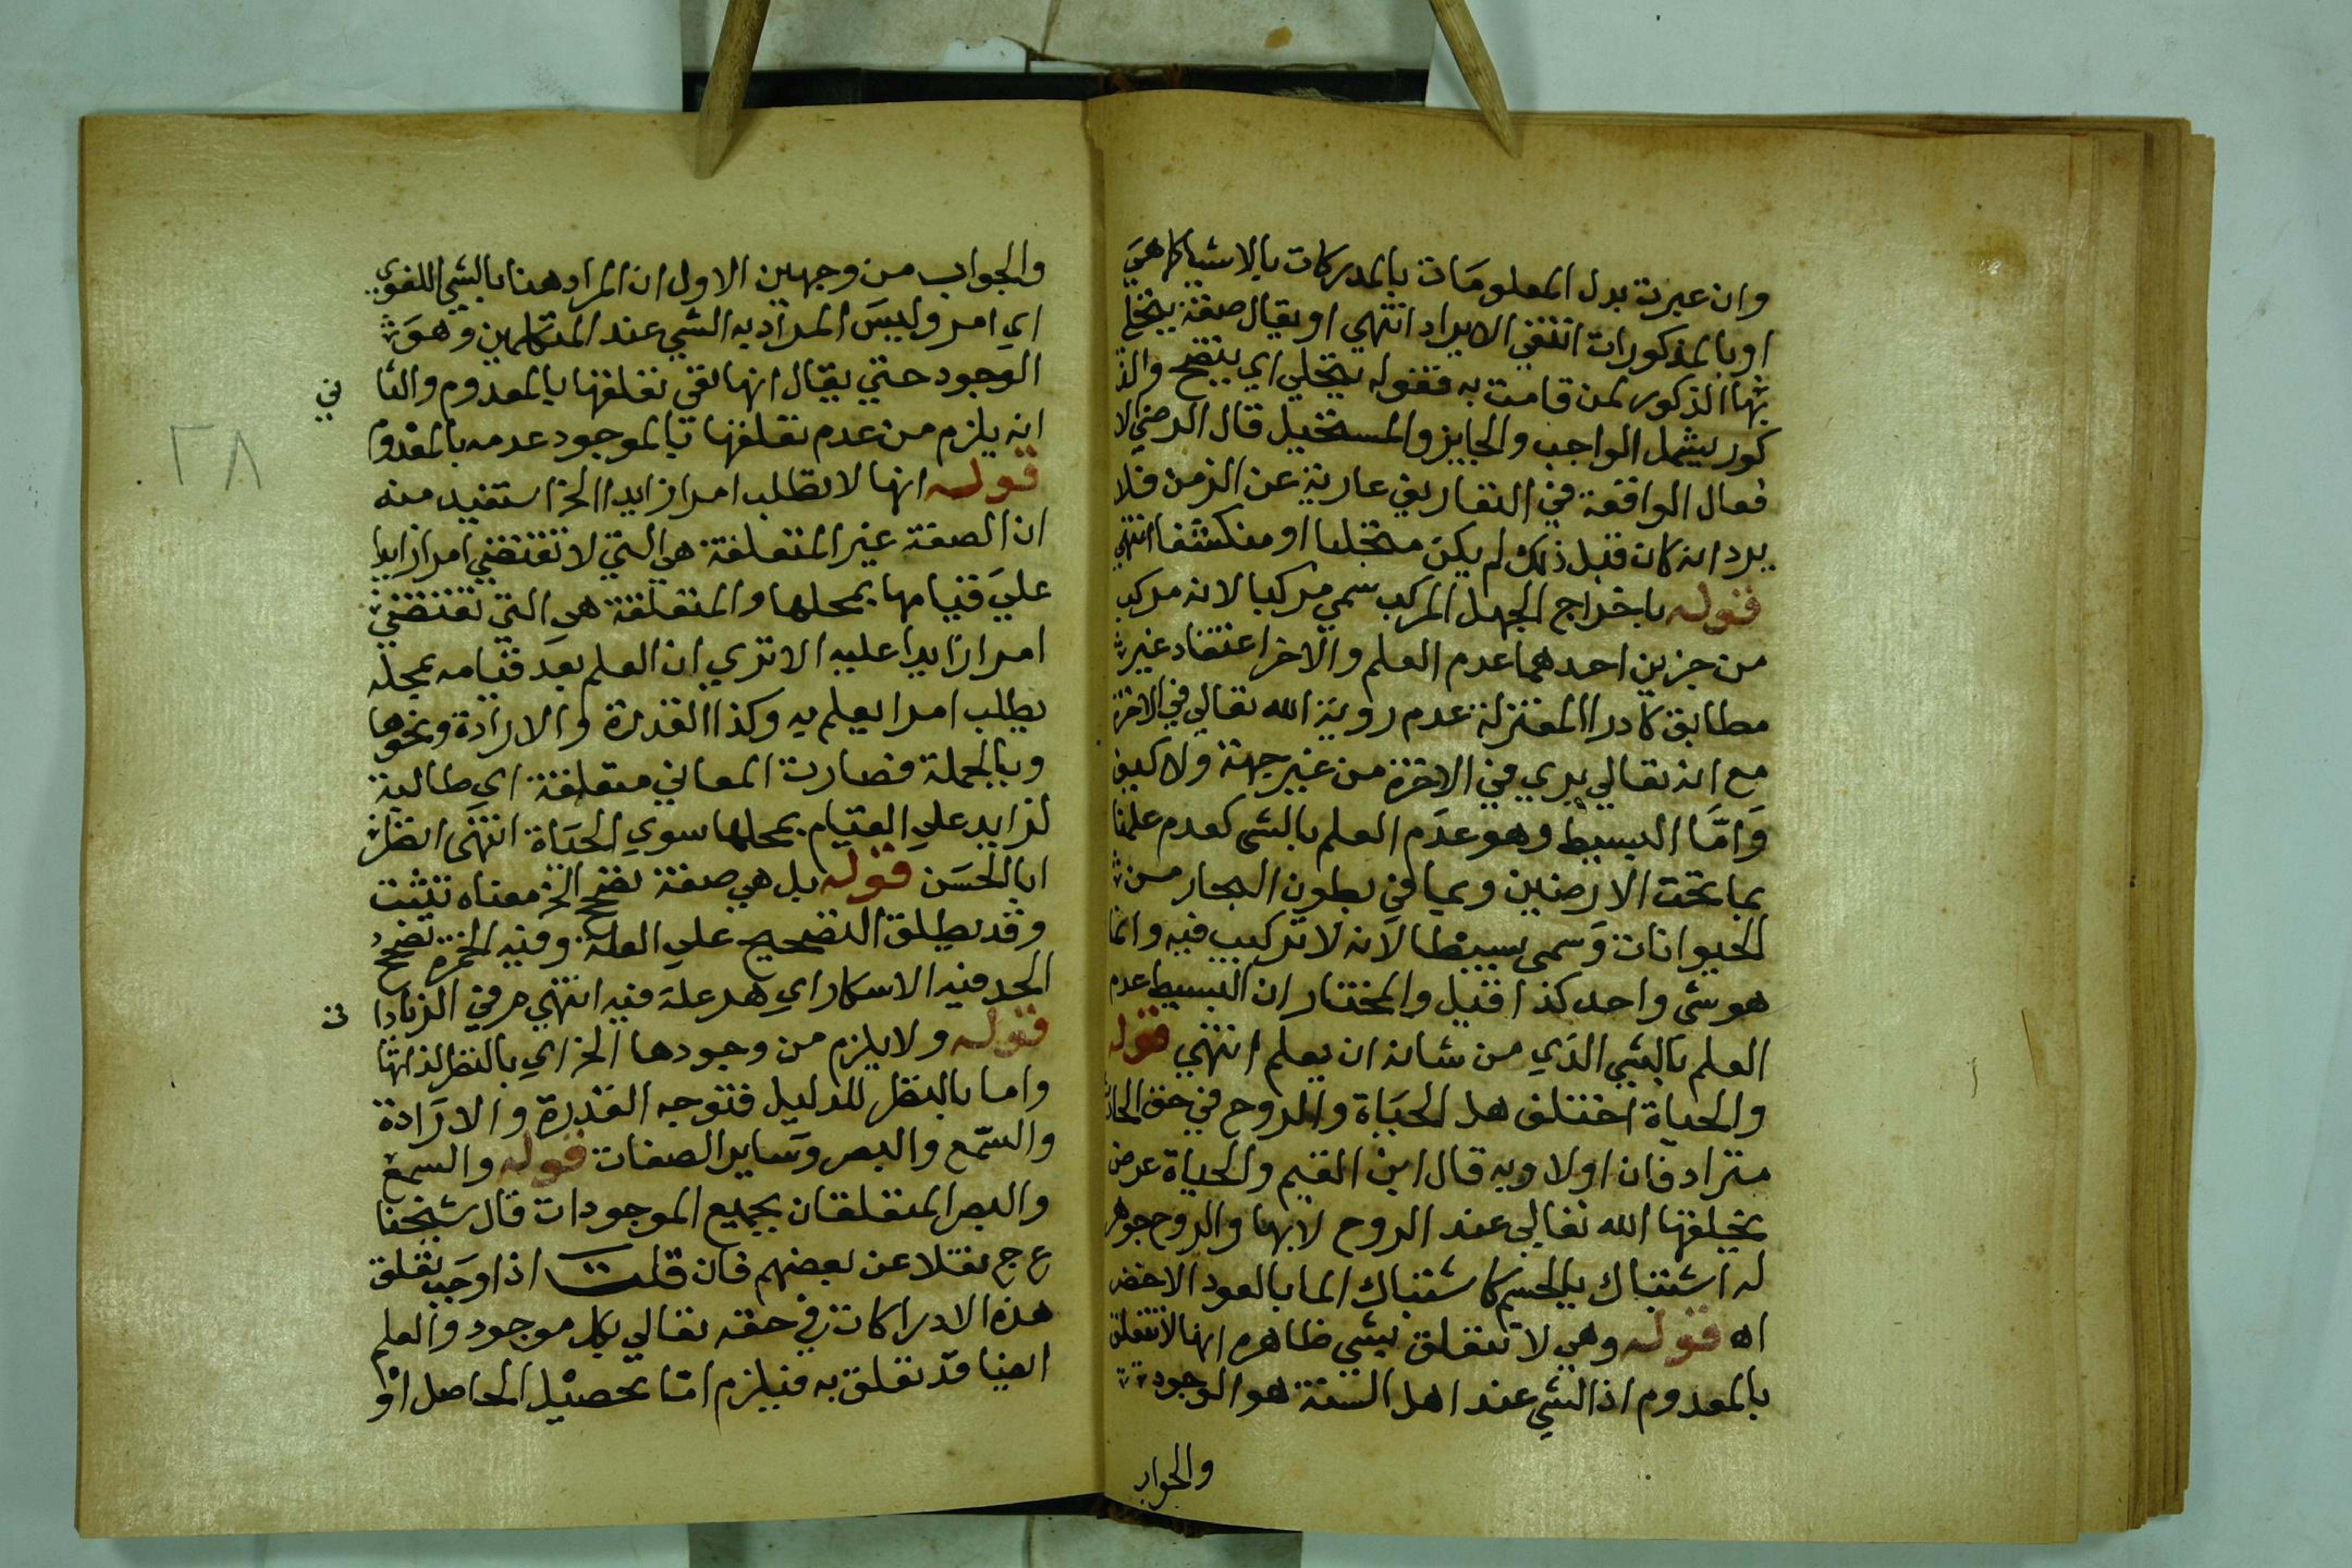 وان عبرت بدل المعلومات بالمدركات بالاشيا كما هي
او بالمذكورات انتفي الايراد انتهي او يقال صفة يتجلي
بها الذكور لمن قامت به فقوله يتجلي اي يتضح والذ
كور يشمل الواجب والجايز والمستحيل قال الرضي الا
فعال الواقعة في التعاريف عارية عن الزمن فلا
يرد انه كان قبل ذلك لم يكن متجليا او منكشفا انتهي
قوله باخراج الجهل المركب سمي مركبا لانه مركب
من جزين احدهما عدم العلم والاخر اعتقاد غير
مطابق كادرا المعتزلة عدم روية الله تعالي في الاخرة
مع انه تعالي يري في الاخرة من غير جهة ولا كيف
وَامَّا البسيط وهو عدَم العلم بالشي كعدم علمنا
بما تحت الارضين وبما في بطون البحار من
الحيوانات وَسمى بسيطا لانه لا تركيب فيه وانما
هو شي واحد كذا قيل والمختار ان البسيط عدم
العلم بالشي الذي من شانه ان يعلم انتهي قوله
والحياة اختلف هل الحياة والروح في حق الحادث
مترادفان اولا وبه قال ابن القيم والحياة عرض
يخلقها الله تعالي عند الروح لا بها والروح جوهر
له اشتباك بالجسم كاشتباك الما بالعود الاخضر
اه قوله وهي لا تتعلق بشي ظاهره انها لا تتعلق
بالمعدوم اذ الشي عند اهل السنة هو الموجود
والجواب
والجواب من وجهين الاول ان المراد هنا بالشي اللغوي
اي امر وليسَ المراد به الشي عند المتكلمين وهوَ
الموجود حتي يقال انها نفي تعلقها بالمعدوم والثا
ني
انه يلزم من عدم تعلقها بالموجود عدمه بالمعدوم
٢٨
قوله انها لا تطلب امرا زايدا الخ استفيد منه
ان الصفة غير المتعلقة هي التي لا تقتضي امرا زايدا
عليَ قيامها بمحلها والمتعلقة هي التي تقتضي
امرا زايدا عليه الا تري ان العلم بعد قيامه بمحله
يطلب امرا يعلم به وكذا القدرة والارادة ونحوها
وبالجملة فصارت المعاني متعلقة اي طالبة
لزايد علي القيام بمحلها سوي الحياة انتهَى انظر
ابا الحسَن قوله بل هي صفة تصحح الخ معناه تثبت
وقد يطلق التصحيح علي العلة وفيه الخمرة تصحح
الحد فيه الاسكار اي هو علة فيه انتهي م ر في الزيادا
ت
قوله ولا يلزم من وجودها الخ اي بالنظر لذاتها
واما بالنظر للدليل فتوجه القدرة والارَادة
والسّمع والبصر وسَاير الصفات قوله والسمع
والبصر المتعلقان بجميع الموجودات قال شيخنا
ع ج نقلا عن بعضهم فان قلت اذا وجب تعلق
هذه الادراكات في حقه تعالي بكل موجود والعلم
ايضا قد تعلق به فيلزم اما تحصيْل الحاصل اوْ